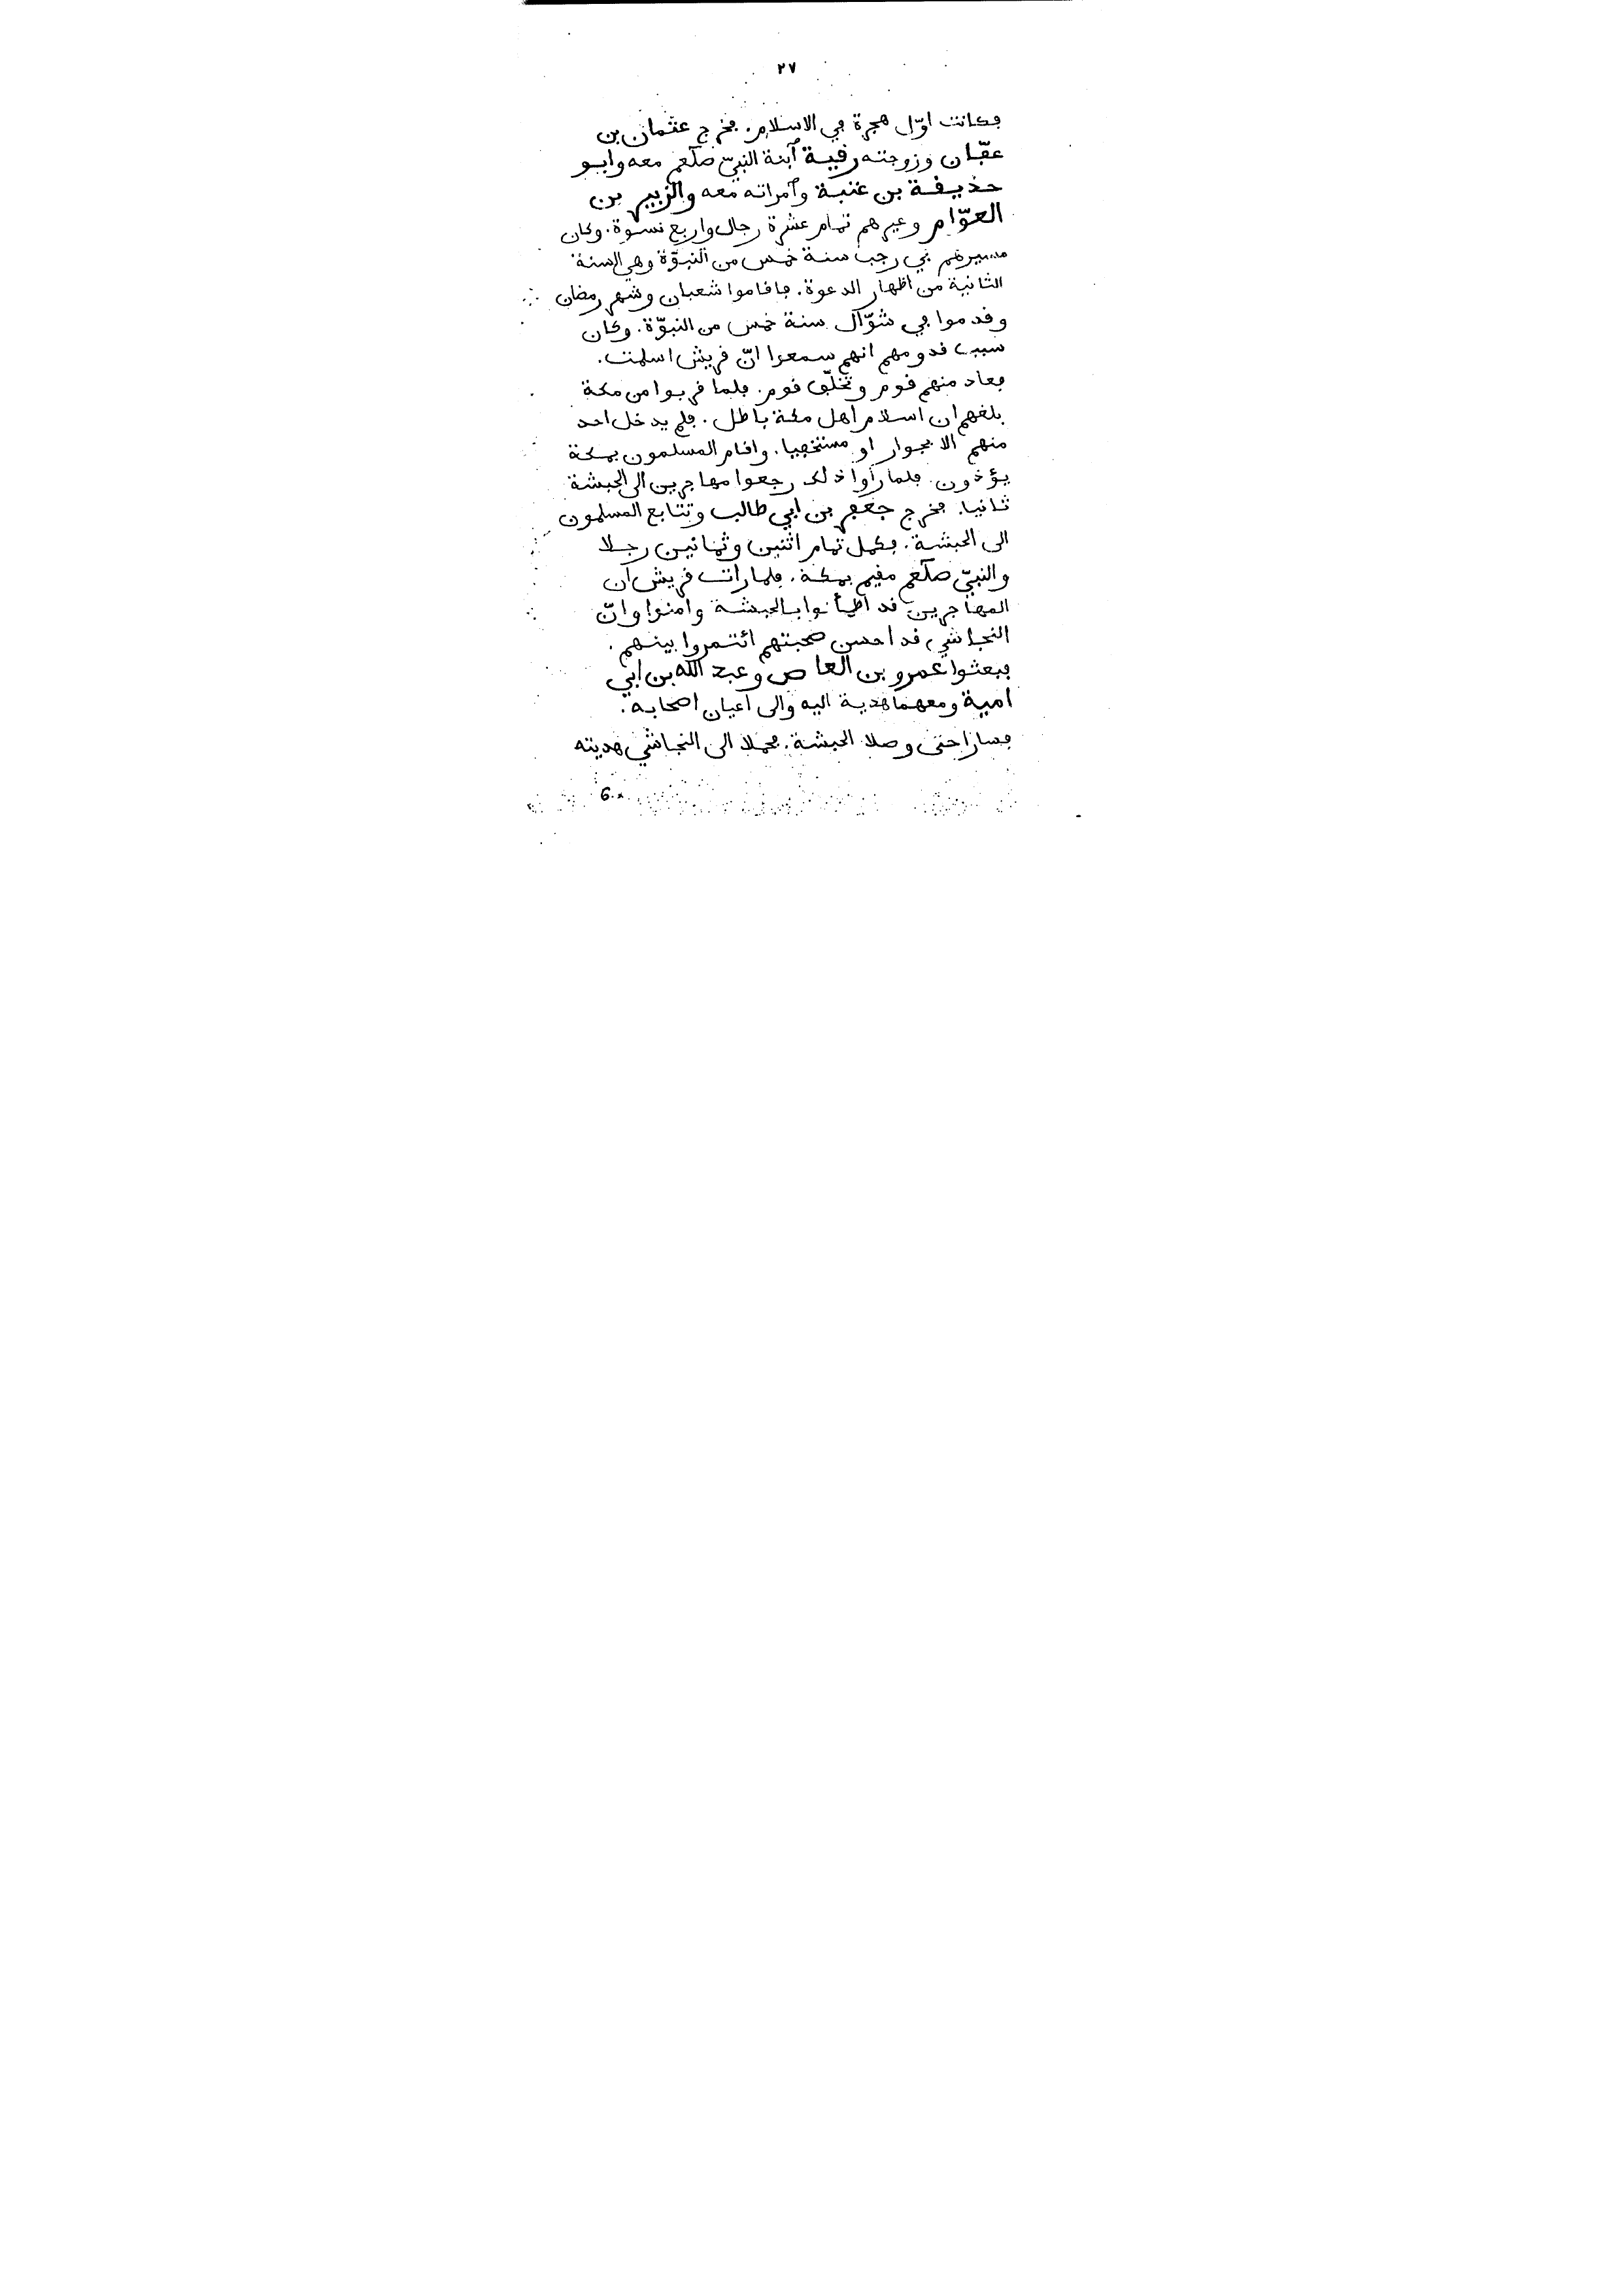 ٢٧
فكانت اوّل هجرة في الاسلام. فخرج عثمان بن
عفّان وزوجته رقية ٱبنة النبيّ صلّعم معه وابو
حذيفة بن عتبة وٱمراته معه والزبير بن
العوّام وغيرهم تمام عشرة رجال واربع نسوة. وكان
مسيرهم في رجب سنة خمس من النبوّة وهي السنة
الثانية من اظهار الدعوة. فاقاموا شعبان وشهر رمضان
وقدموا في شوّال سنة خمس من النبوّة. وكان
سبب قدومهم انهم سمعوا انّ قريش اسلمت.
فعاد منهم قوم وتخلّف قوم. فلما قربوا من مكة
بلغهم ان اسلام اهل مكة باطل. فلم يدخل احد
منهم الا بجوار او مستخفيا. واقام المسلمون بمكة
يؤذون. فلما رأوا ذلك رجعوا مهاجرين الى الحبشة
ثانيا. فخرج جعفر بن ابي طالب وتتابع المسلمون
الى الحبشة. فكمل تمام اثنين وثمانين رجلا
والنبيّ صلّعم مقيم بمكة. فلما رات قريش ان
المهاجرين قد اطمأنوا بالحبشة وامنوا وانّ
النجاشي قد احسن صحبتهم ائتمروا بينهم.
فبعثوا عمرو بن العاص وعبد الله بن ابي
امية ومعهما هدية اليه والى اعيان اصحابه.
فسارا حتى وصلا الحبشة. فحملا الى النجاشي هديته
6.*